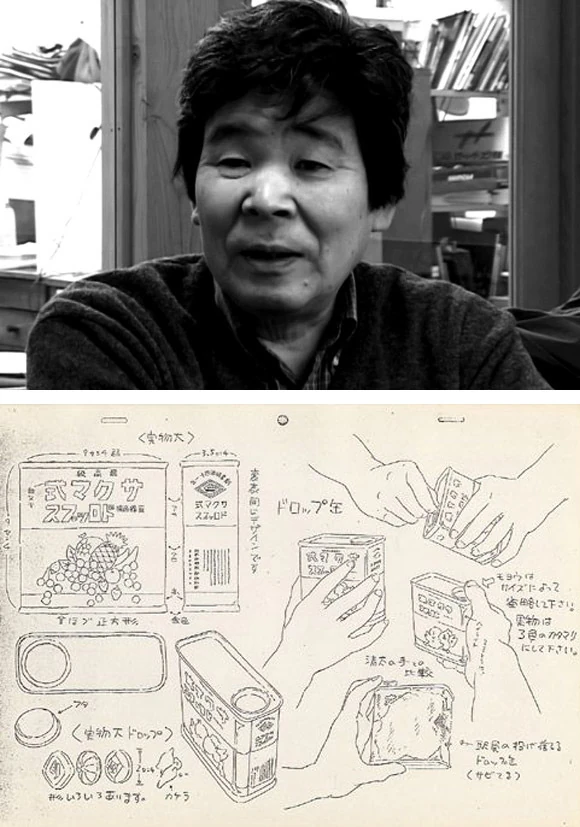 〈実物大〉
最高級
サクマ式
ドロップス
サクマ式
ドロップス
表裏同じデザインです
ほぼ正方形
金色
フタ
〈実物大ドロップ〉
形いろいろあります。
カケラ
ドロップ缶
モヨウは
サイズによって
省略して下さい。
実物は
3色のカタマリ
にして下さい。
清太の手との
比較
駅員の投げ捨てる
ドロップ缶
(サビてる)